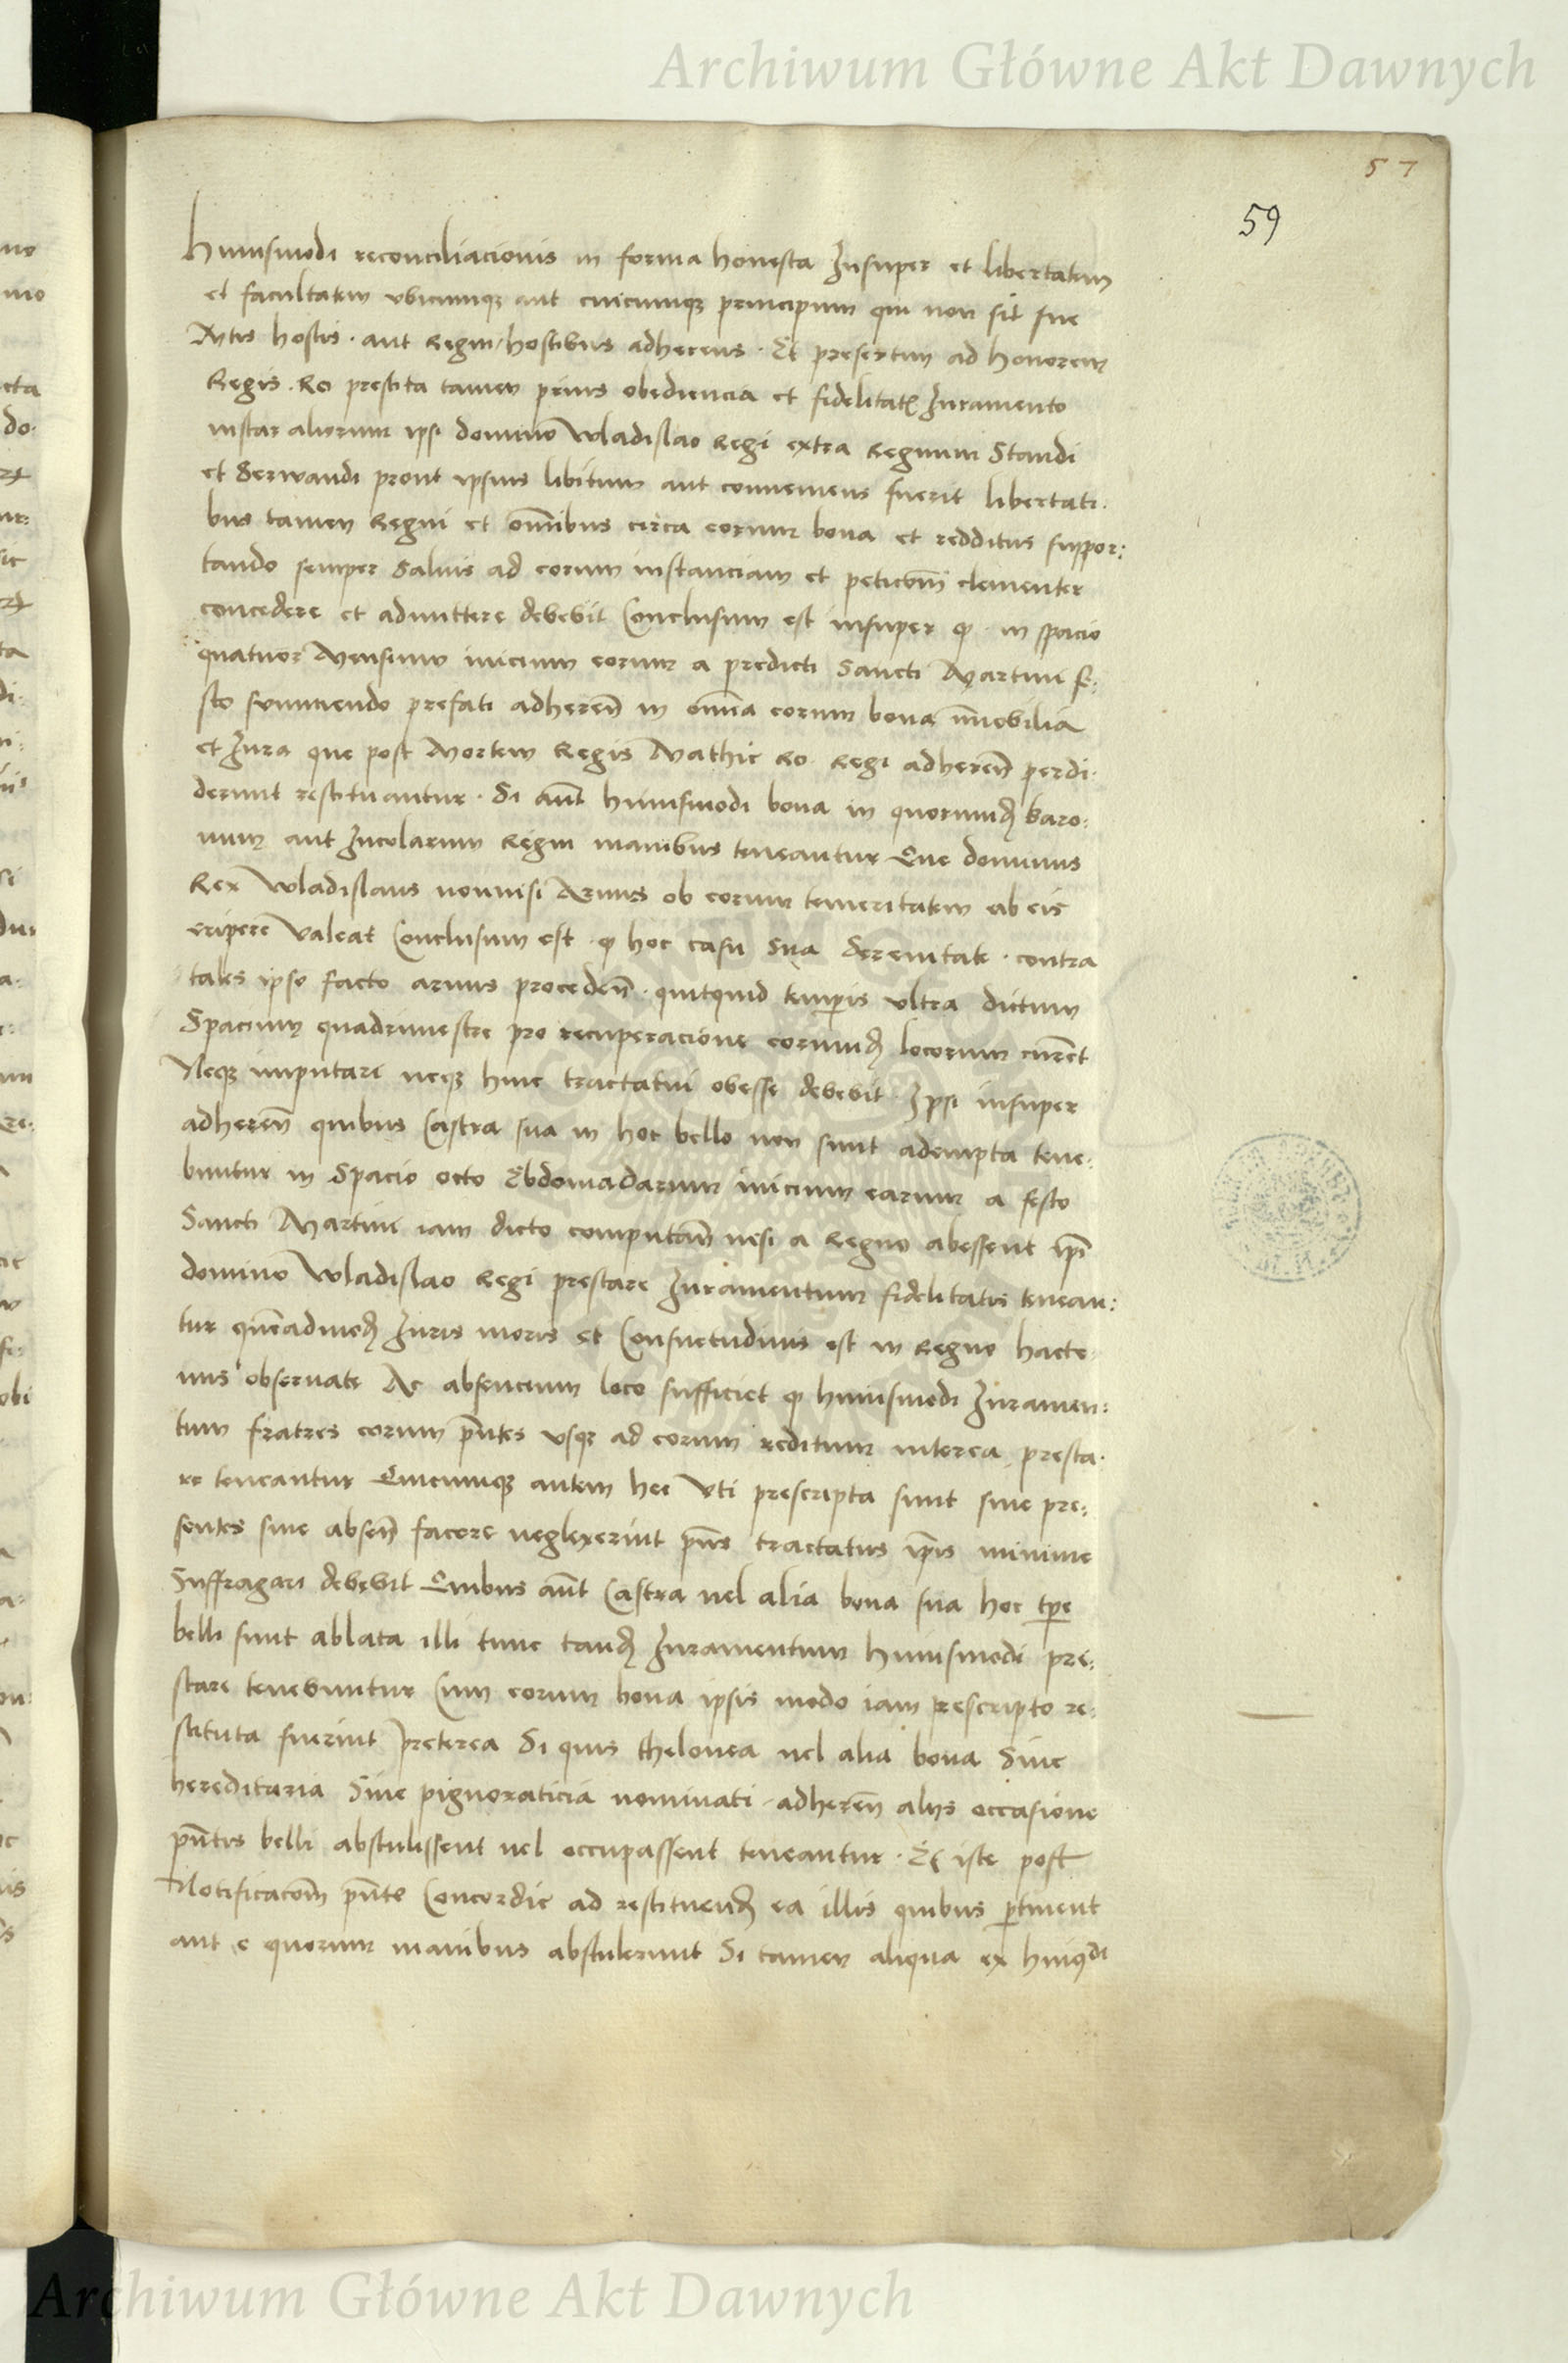 Archiwum Główne Akt Dawnych
57
59
huiusmodi reconciliacionis in forma honesta Insuper et libertatem
et facultatem vbicumqz aut cuicumqz principum qui non sit sue
Mtis hostis · aut Regni hostibus adherens · Et presertim ad honorem
Regis · Ro prestita tamen prius obediencia et fidelitatis Iuramento
instar aliorum ipsi domino Wladislao Regi extra Regnum Standi
et Seruandi prout ipsius libitum aut conueniens fuerit libertati·
bus tamen Regni et omnibus circa eorum bona et redditus suppor:
tando semper Saluis ad eorum instanciam et peticionem clementer
concedere et admittere debebit Conclusum est insuper q in spacio
quatuor Mensium inicium eorum a predicti Sancti Martini fe:
sto summendo prefati adheren in omnia eorum bona immobilia
et Iura que post Mortem Regis Mathie Ro Regi adheren perdi·
derunt restituantur · Si aut huiusmodi bona in quorumd baro:
num aut Incolarum Regni manibus teneantur Que dominus
Rex Wladislaus nonnisi Armis ob eorum temeritatem ab eis
eripere Valeat Conclusum est · q hoc casu Sua Serenitate · contra
tales ipso facto armis proceden · quitquid temporis vltra dictum
Spacium quadrimestre pro recuperacione eorumd locorum curret
Neqz imputari neqz huic tractatui obesse debebit · Ipsi insuper
adheren quibus Castra sua in hoc bello non sunt adempta tene:
buntur in Spacio octo Ebdomadarum inicium earum a festo
Sancti Martini iam dicto computan nisi a Regno abessent ipi
domino Wladislao Regi prestare Iuramentum fidelitatis tenean:
tur quemadmod Iuris moris et Consuetudinis est in Regno hacte·
nus obseruate Ac absencium loco sufficiet q huiusmodi Iuramen:
tum fratres eorum pntes vsqz ad eorum reditum interea presta·
re teneantur Quicumqz autem hec Vti prescripta sunt siue pre:
sentes siue absen facere neglexerint pns tractatus ipis minime
Suffragari debebit Quibus aut Castra uel alia bona sua hoc tpe
belli sunt ablata illi tunc tand Iuramentum huiusmodi pre:
stare tenebuntur Cum eorum bona ipsis modo iam prescripto re:
stituta fuerint Preterea Si quis thelonea uel alia bona Siue
hereditaria Siue pignoraticia nominati · adheren alijs occasione
pntis belli abstulissent uel occupassent teneantur · Et iste post
Notificacom pnte Concordie ad restituend ea illis quibus ptinent
aut e quorum manibus abstulerunt Si tamen aliqua ex huiusdi
Archiwum Główne Akt Dawnych